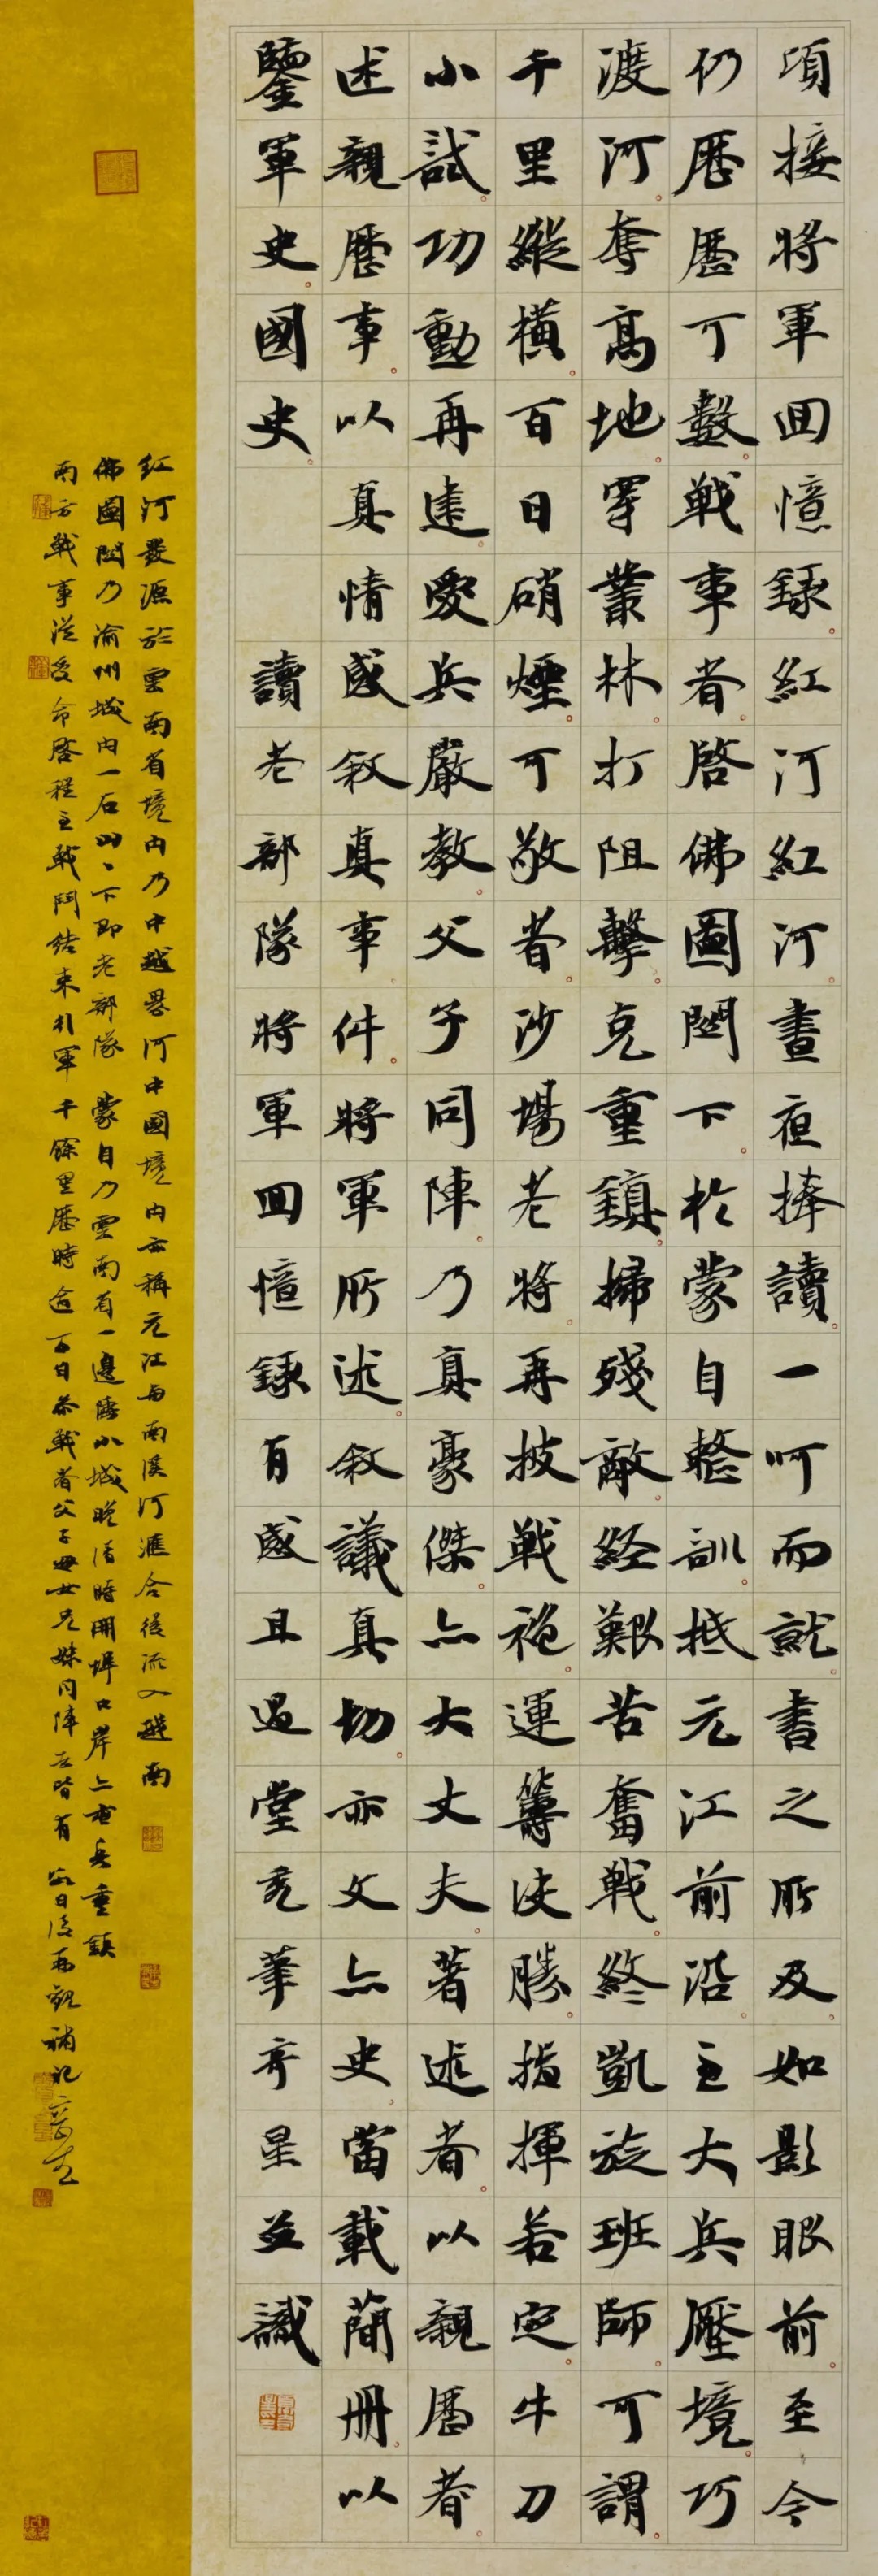 頃接將軍回憶録紅河紅河晝夜捧讀一呵而就書之所及如影眼前至今
仍歷歷可數戰事者啓佛圖関下於蒙自整訓抵元江前沿主大兵壓境巧
渡河奪高地穿叢林打阻擊克重鎮掃殘敵經艱苦奮戰終凱旋班師可謂
千里縱橫百日硝煙可敬者沙場老將再披戰袍運籌決勝指揮若定牛刀
小試功勳再建愛兵嚴教父子同陣乃真豪傑亦大丈夫著述者以親歷者
述親歷事以真情感敘真事件將軍所述敘議真切亦文亦史當載簡冊以
鑒軍史國史
讀老部隊將軍回憶録有感且過堂亮筆齊星並識
紅河發源於雲南省境内乃中越界河中國境内亦稱元江与南溪河滙合後流入越南
佛圖関乃渝州城内一石山山下即老部隊 蒙自乃雲南有一邊陲小城晚清時開埠口岸亦屯兵重鎮
兩方戰事從受命啓程至戰鬥結束引軍千餘里歷時逾百日参戰者父子母女兄妹同陣者皆有 數日後再觀補記